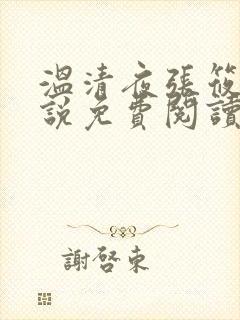 溫清夜張筱
說免費閱讀
謝啓東